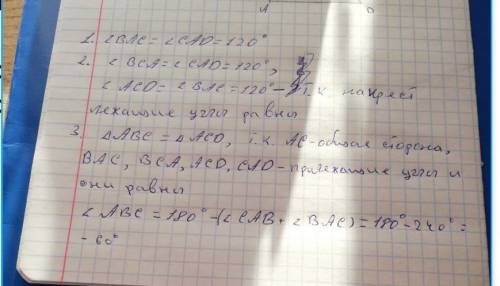 A D
1. ∠BAC = ∠CAD = 120°
2. ∠BCA = ∠CAD = 120°,
∠ACD = ∠BAC = 120° - т.к накрест
лежащие углы равны
3. ΔABC = ΔACD, т.к. AC - общая сторона,
BAC, BCA, ACD, CAD - прилежащие углы и
они равны
∠ABC = 180° - (∠CAB + ∠BAC) = 180° - 240° =
- 60°